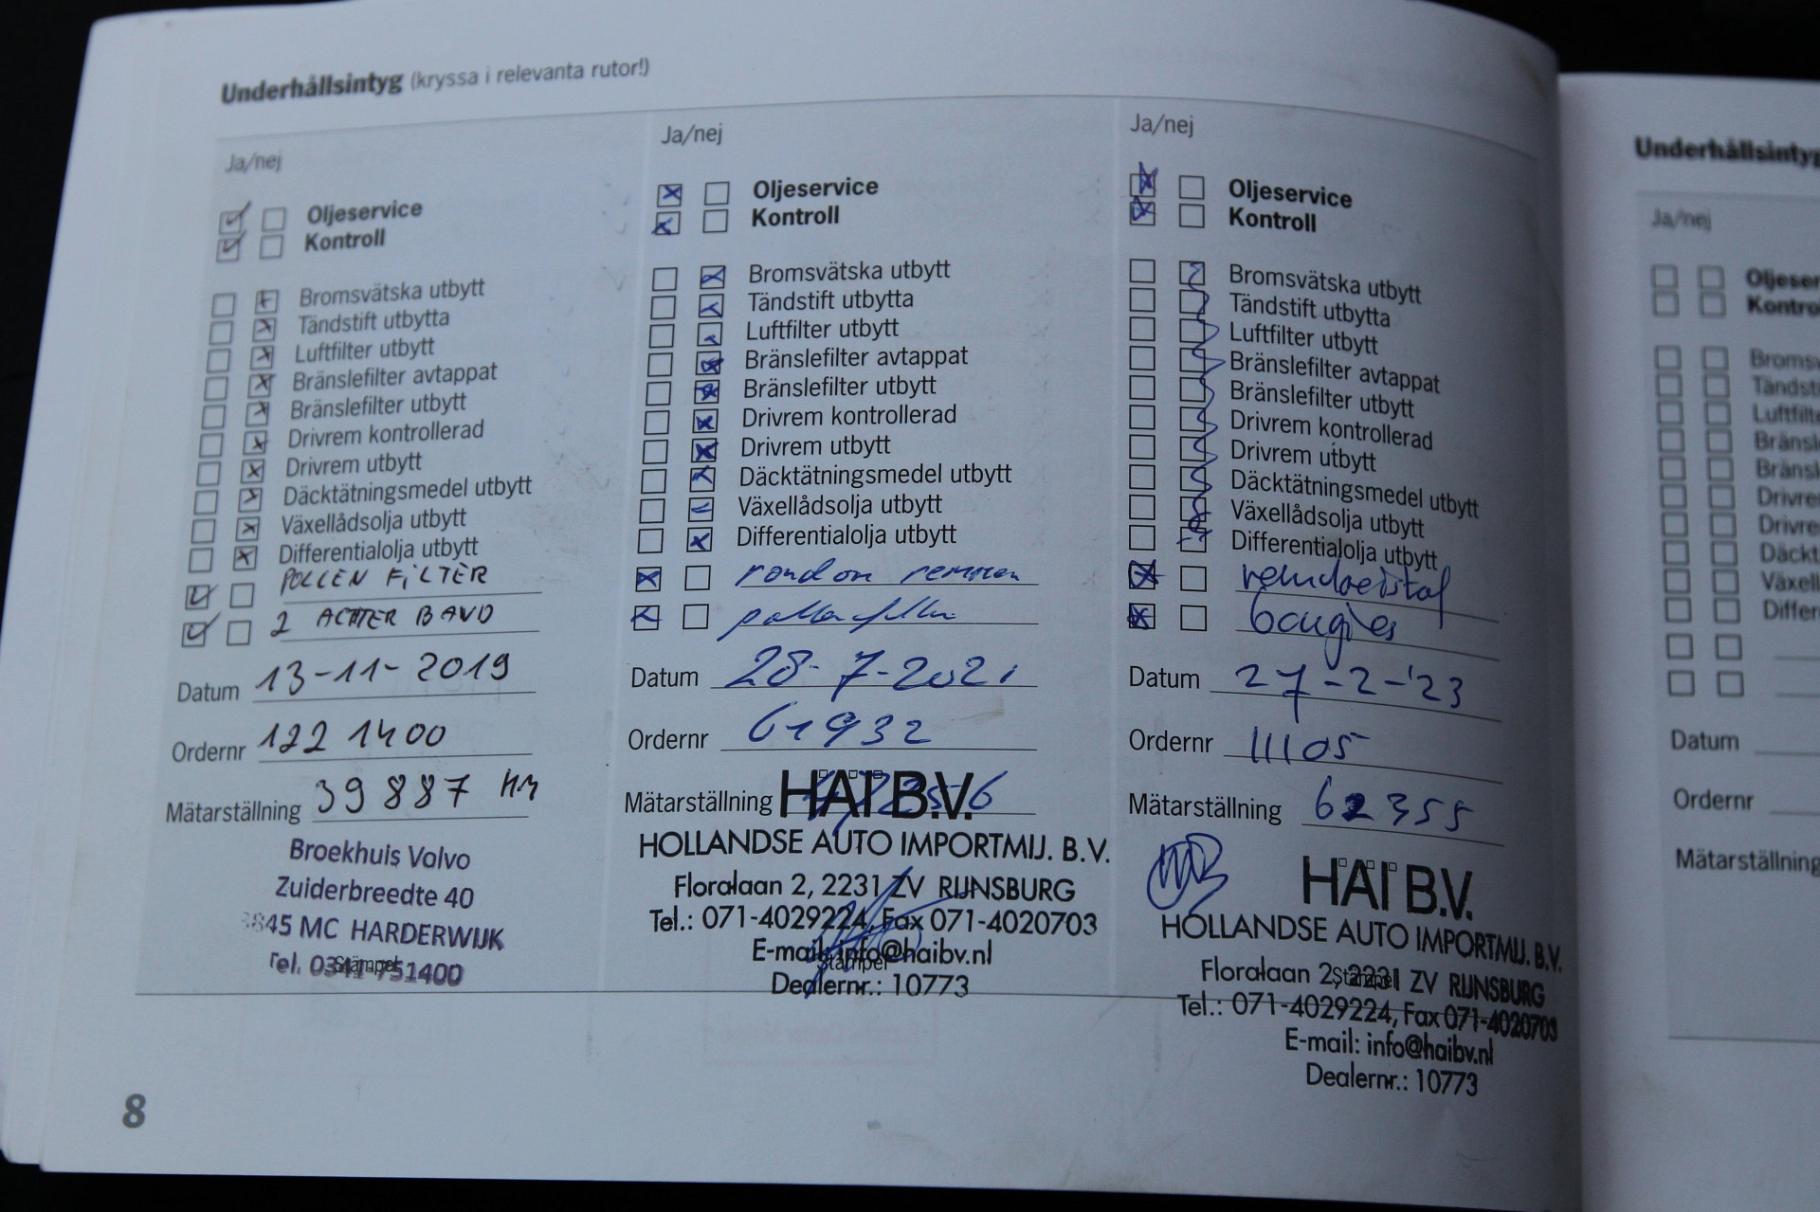 Underhållsintyg (kryssa i relevanta rutor!)
Ja/nej
Oljeservice
Kontroll
Bromsvätska utbytt
Tändstift utbytta
Luftfilter utbytt
Bränslefilter avtappat
Bränslefilter utbytt
Drivrem kontrollerad
Drivrem utbytt
Däcktätningsmedel utbytt
Växellådsolja utbytt
Differentialolja utbytt
POLLEN FILTER
2 ACHTER BAND
Datum 13-11-2019
Ordernr 122 1400
Mätarställning 39887 KM
Broekhuis Volvo
Zuiderbreedte 40
3845 MC HARDERWIJK
Tel. 0341-751400
Stämpel
Ja/nej
Oljeservice
Kontroll
Bromsvätska utbytt
Tändstift utbytta
Luftfilter utbytt
Bränslefilter avtappat
Bränslefilter utbytt
Drivrem kontrollerad
Drivrem utbytt
Däcktätningsmedel utbytt
Växellådsolja utbytt
Differentialolja utbytt
rondom remmen
pollenfilter
Datum 28-7-2021
Ordernr 61932
Mätarställning
HAI B.V.
HOLLANDSE AUTO IMPORTMIJ. B.V.
Floralaan 2, 2231 ZV RIJNSBURG
Tel.: 071-4029224, Fax 071-4020703
E-mail: info@haibv.nl
Stämpel
Dealernr.: 10773
Ja/nej
Oljeservice
Kontroll
Bromsvätska utbytt
Tändstift utbytta
Luftfilter utbytt
Bränslefilter avtappat
Bränslefilter utbytt
Drivrem kontrollerad
Drivrem utbytt
Däcktätningsmedel utbytt
Växellådsolja utbytt
Differentialolja utbytt
remvloeistof
bougies
Datum 27-2-'23
Ordernr 11105
Mätarställning 62355
HAI B.V.
HOLLANDSE AUTO IMPORTMIJ. B.V.
Floralaan 2, 2231 ZV RIJNSBURG
Stämpel
Tel.: 071-4029224, Fax 071-4020703
E-mail: info@haibv.nl
Dealernr.: 10773
8
Underhållsintyg
Ja/nej
Oljeser
Kontro
Bromsv
Tändst
Luftfilte
Bränsl
Bränsl
Drivre
Drivre
Däckt
Växell
Differ
Datum
Ordernr
Mätarställning